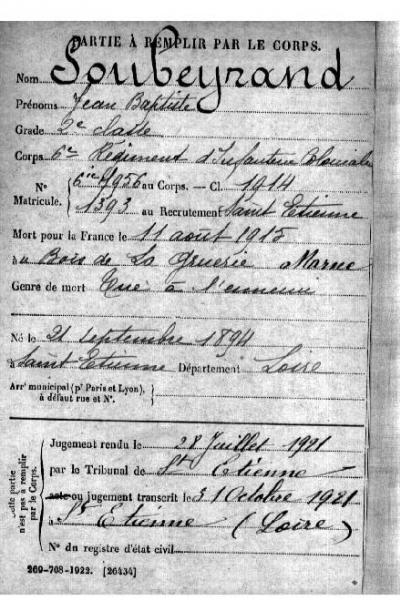 PARTIE À REMPLIR PAR LE CORPS.
Nom Soubeyrand
Prénoms Jean Baptiste
Grade 2e classe
Corps 6e Régiment d'Infanterie Coloniale
N° Matricule. { 9956 au Corps. — Cl. 1914
1393 au Recrutement Saint Etienne
Mort pour la France le 11 aout 1915
à au Bois de La Gruerie Marne
Genre de mort Tué à l'ennemi
Né le 21 septembre 1894
à Saint Etienne Département Loire
Arrt municipal (pr Paris et Lyon),
à défaut rue et N°.
Cette partie n'est pas à remplir par le Corps.
Jugement rendu le 28 Juillet 1921
par le Tribunal de St Etienne
acte ou jugement transcrit le 31 Octobre 1921
à St Etienne (Loire)
N° du registre d'état civil
269-708-1922. [26434]